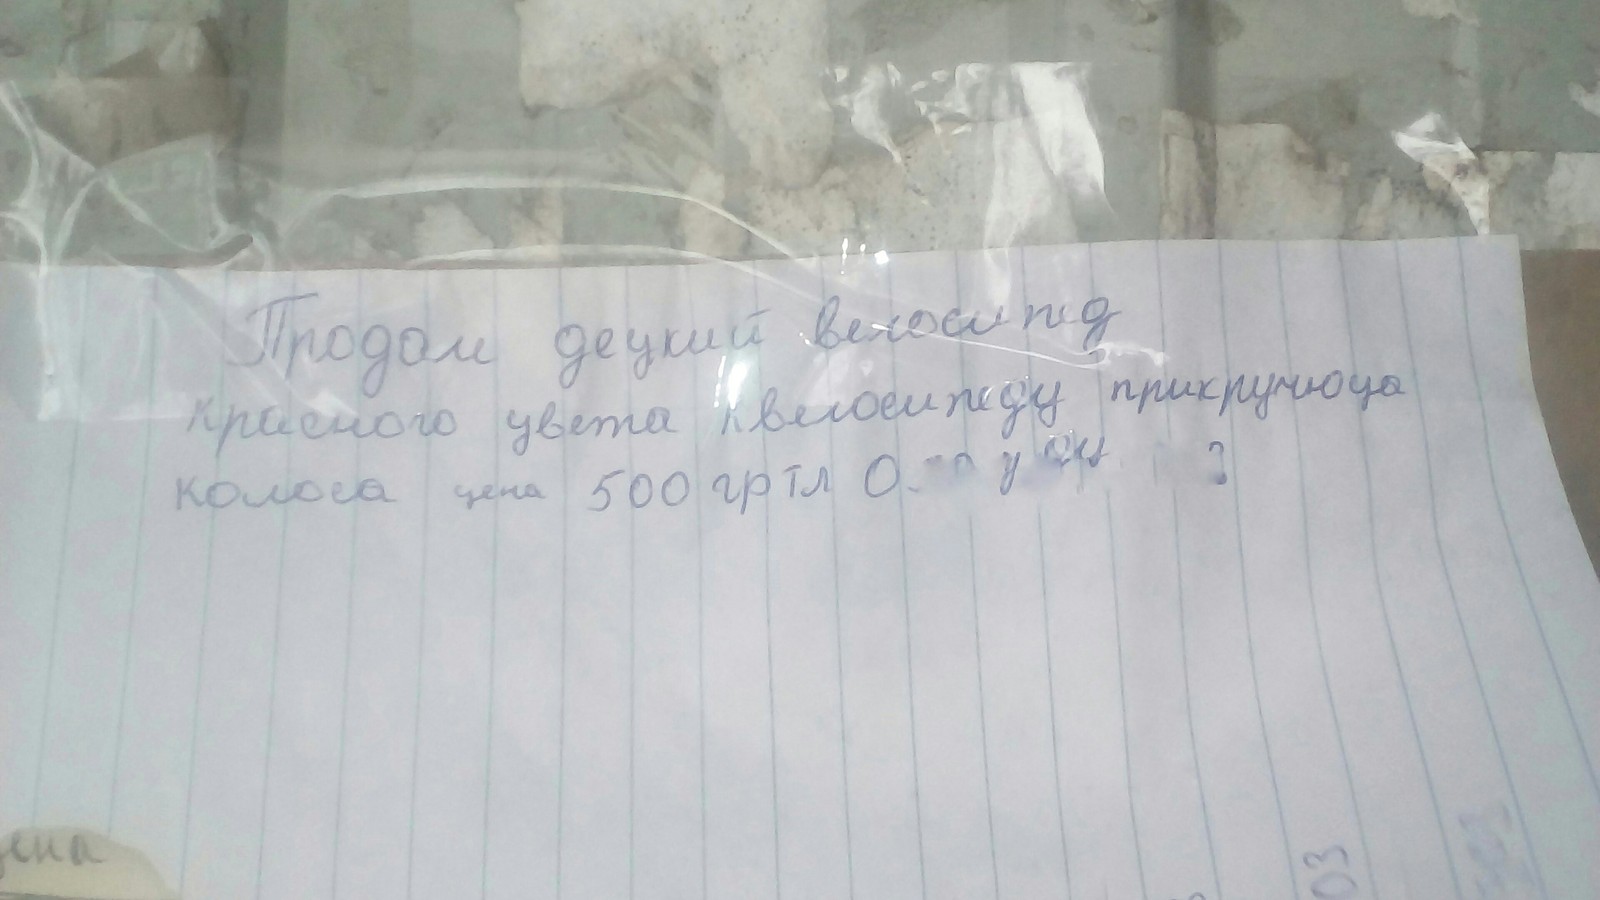 Продам децкий велосипед
красного цвета к велосипеду прикручюца
колоса цена 500 гр тл 0
цена
03